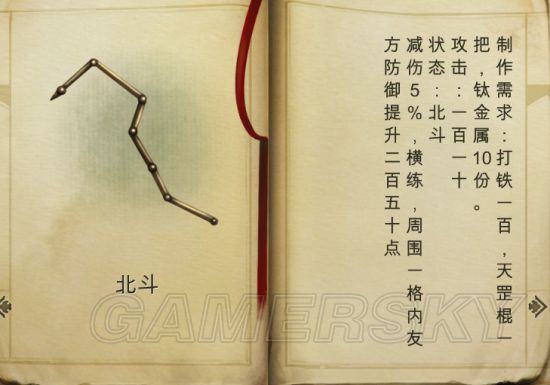 北斗
制作需求：打铁一百，天罡棍一
把，钛金属10份。
攻击：一百一十
状态：北斗
减伤5%，横练，周围一格内友
方防御提升二百五十点
GAMERSKY